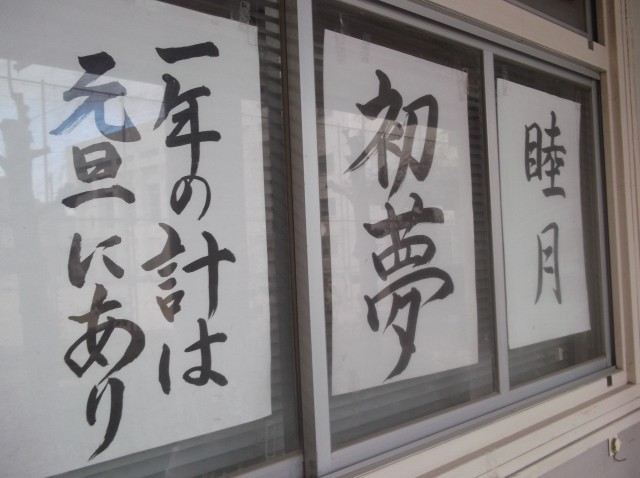 睦月
初夢
一年の計は
元旦にあり